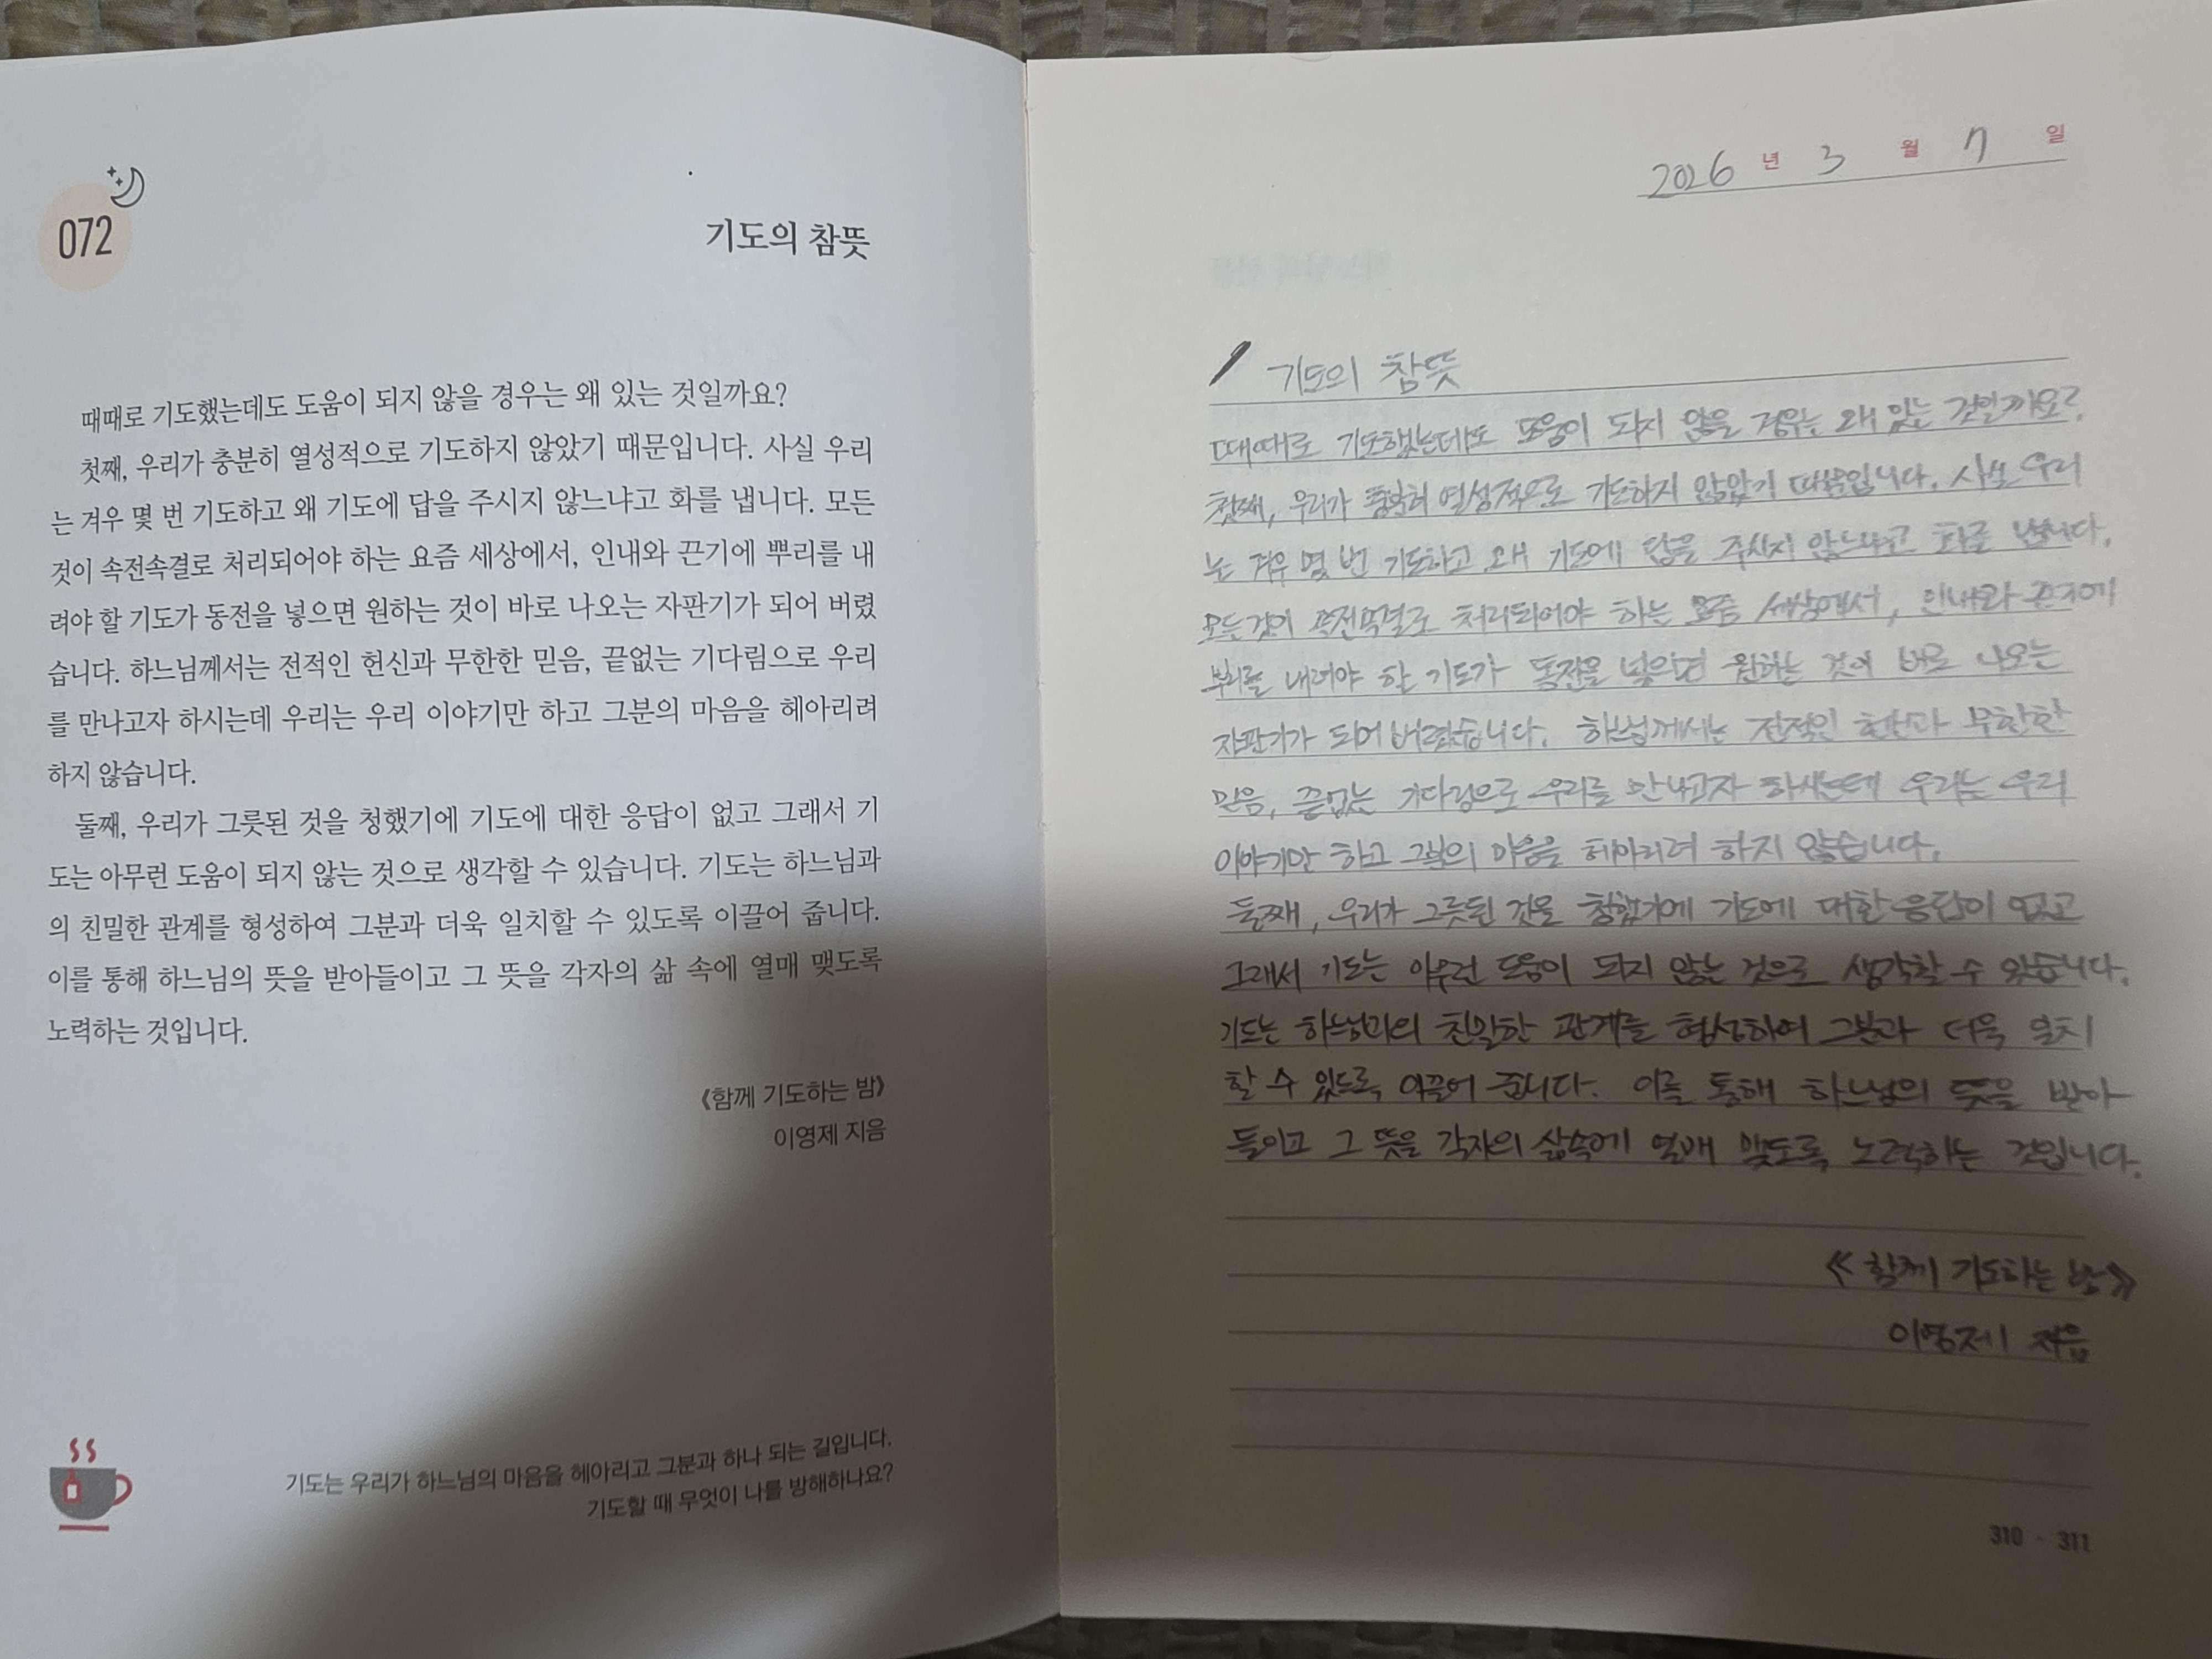 072
기도의 참뜻
때때로 기도했는데도 도움이 되지 않을 경우는 왜 있는 것일까요?
첫째, 우리가 충분히 열성적으로 기도하지 않았기 때문입니다. 사실 우리
는 겨우 몇 번 기도하고 왜 기도에 답을 주시지 않느냐고 화를 냅니다. 모든
것이 속전속결로 처리되어야 하는 요즘 세상에서, 인내와 끈기에 뿌리를 내
려야 할 기도가 동전을 넣으면 원하는 것이 바로 나오는 자판기가 되어 버렸
습니다. 하느님께서는 전적인 헌신과 무한한 믿음, 끝없는 기다림으로 우리
를 만나고자 하시는데 우리는 우리 이야기만 하고 그분의 마음을 헤아리려
하지 않습니다.
둘째, 우리가 그릇된 것을 청했기에 기도에 대한 응답이 없고 그래서 기
도는 아무런 도움이 되지 않는 것으로 생각할 수 있습니다. 기도는 하느님과
의 친밀한 관계를 형성하여 그분과 더욱 일치할 수 있도록 이끌어 줍니다.
이를 통해 하느님의 뜻을 받아들이고 그 뜻을 각자의 삶 속에 열매 맺도록
노력하는 것입니다.
《함께 기도하는 밤》
이영제 지음
기도는 우리가 하느님의 마음을 헤아리고 그분과 하나 되는 길입니다.
기도할 때 무엇이 나를 방해하나요?
2026 년 3 월 7 일
기도의 참뜻
때때로 기도했는데도 도움이 되지 않을 경우는 왜 있는 것일까요?
첫째, 우리가 충분히 열성적으로 기도하지 않았기 때문입니다. 사실 우리
는 겨우 몇 번 기도하고 왜 기도에 답을 주시지 않느냐고 화를 냅니다.
모든것이 속전속결로 처리되어야 하는 요즘 세상에서, 인내와 끈기에
뿌리를 내려야 할 기도가 동전을 넣으면 원하는 것이 바로 나오는
자판기가 되어 버렸습니다. 하느님께서는 전적인 헌신과 무한한
믿음, 끝없는 기다림으로 우리를 만나고자 하시는데 우리는 우리
이야기만 하고 그분의 마음을 헤아리려 하지 않습니다.
둘째, 우리가 그릇된 것을 청했기에 기도에 대한 응답이 없고
그래서 기도는 아무런 도움이 되지 않는 것으로 생각할 수 있습니다.
기도는 하느님과의 친밀한 관계를 형성하여 그분과 더욱 일치
할 수 있도록 이끌어 줍니다. 이를 통해 하느님의 뜻을 받아
들이고 그 뜻을 각자의 삶속에 열매 맺도록 노력하는 것입니다.
《함께 기도하는 밤》
이영제 지음
310 - 311